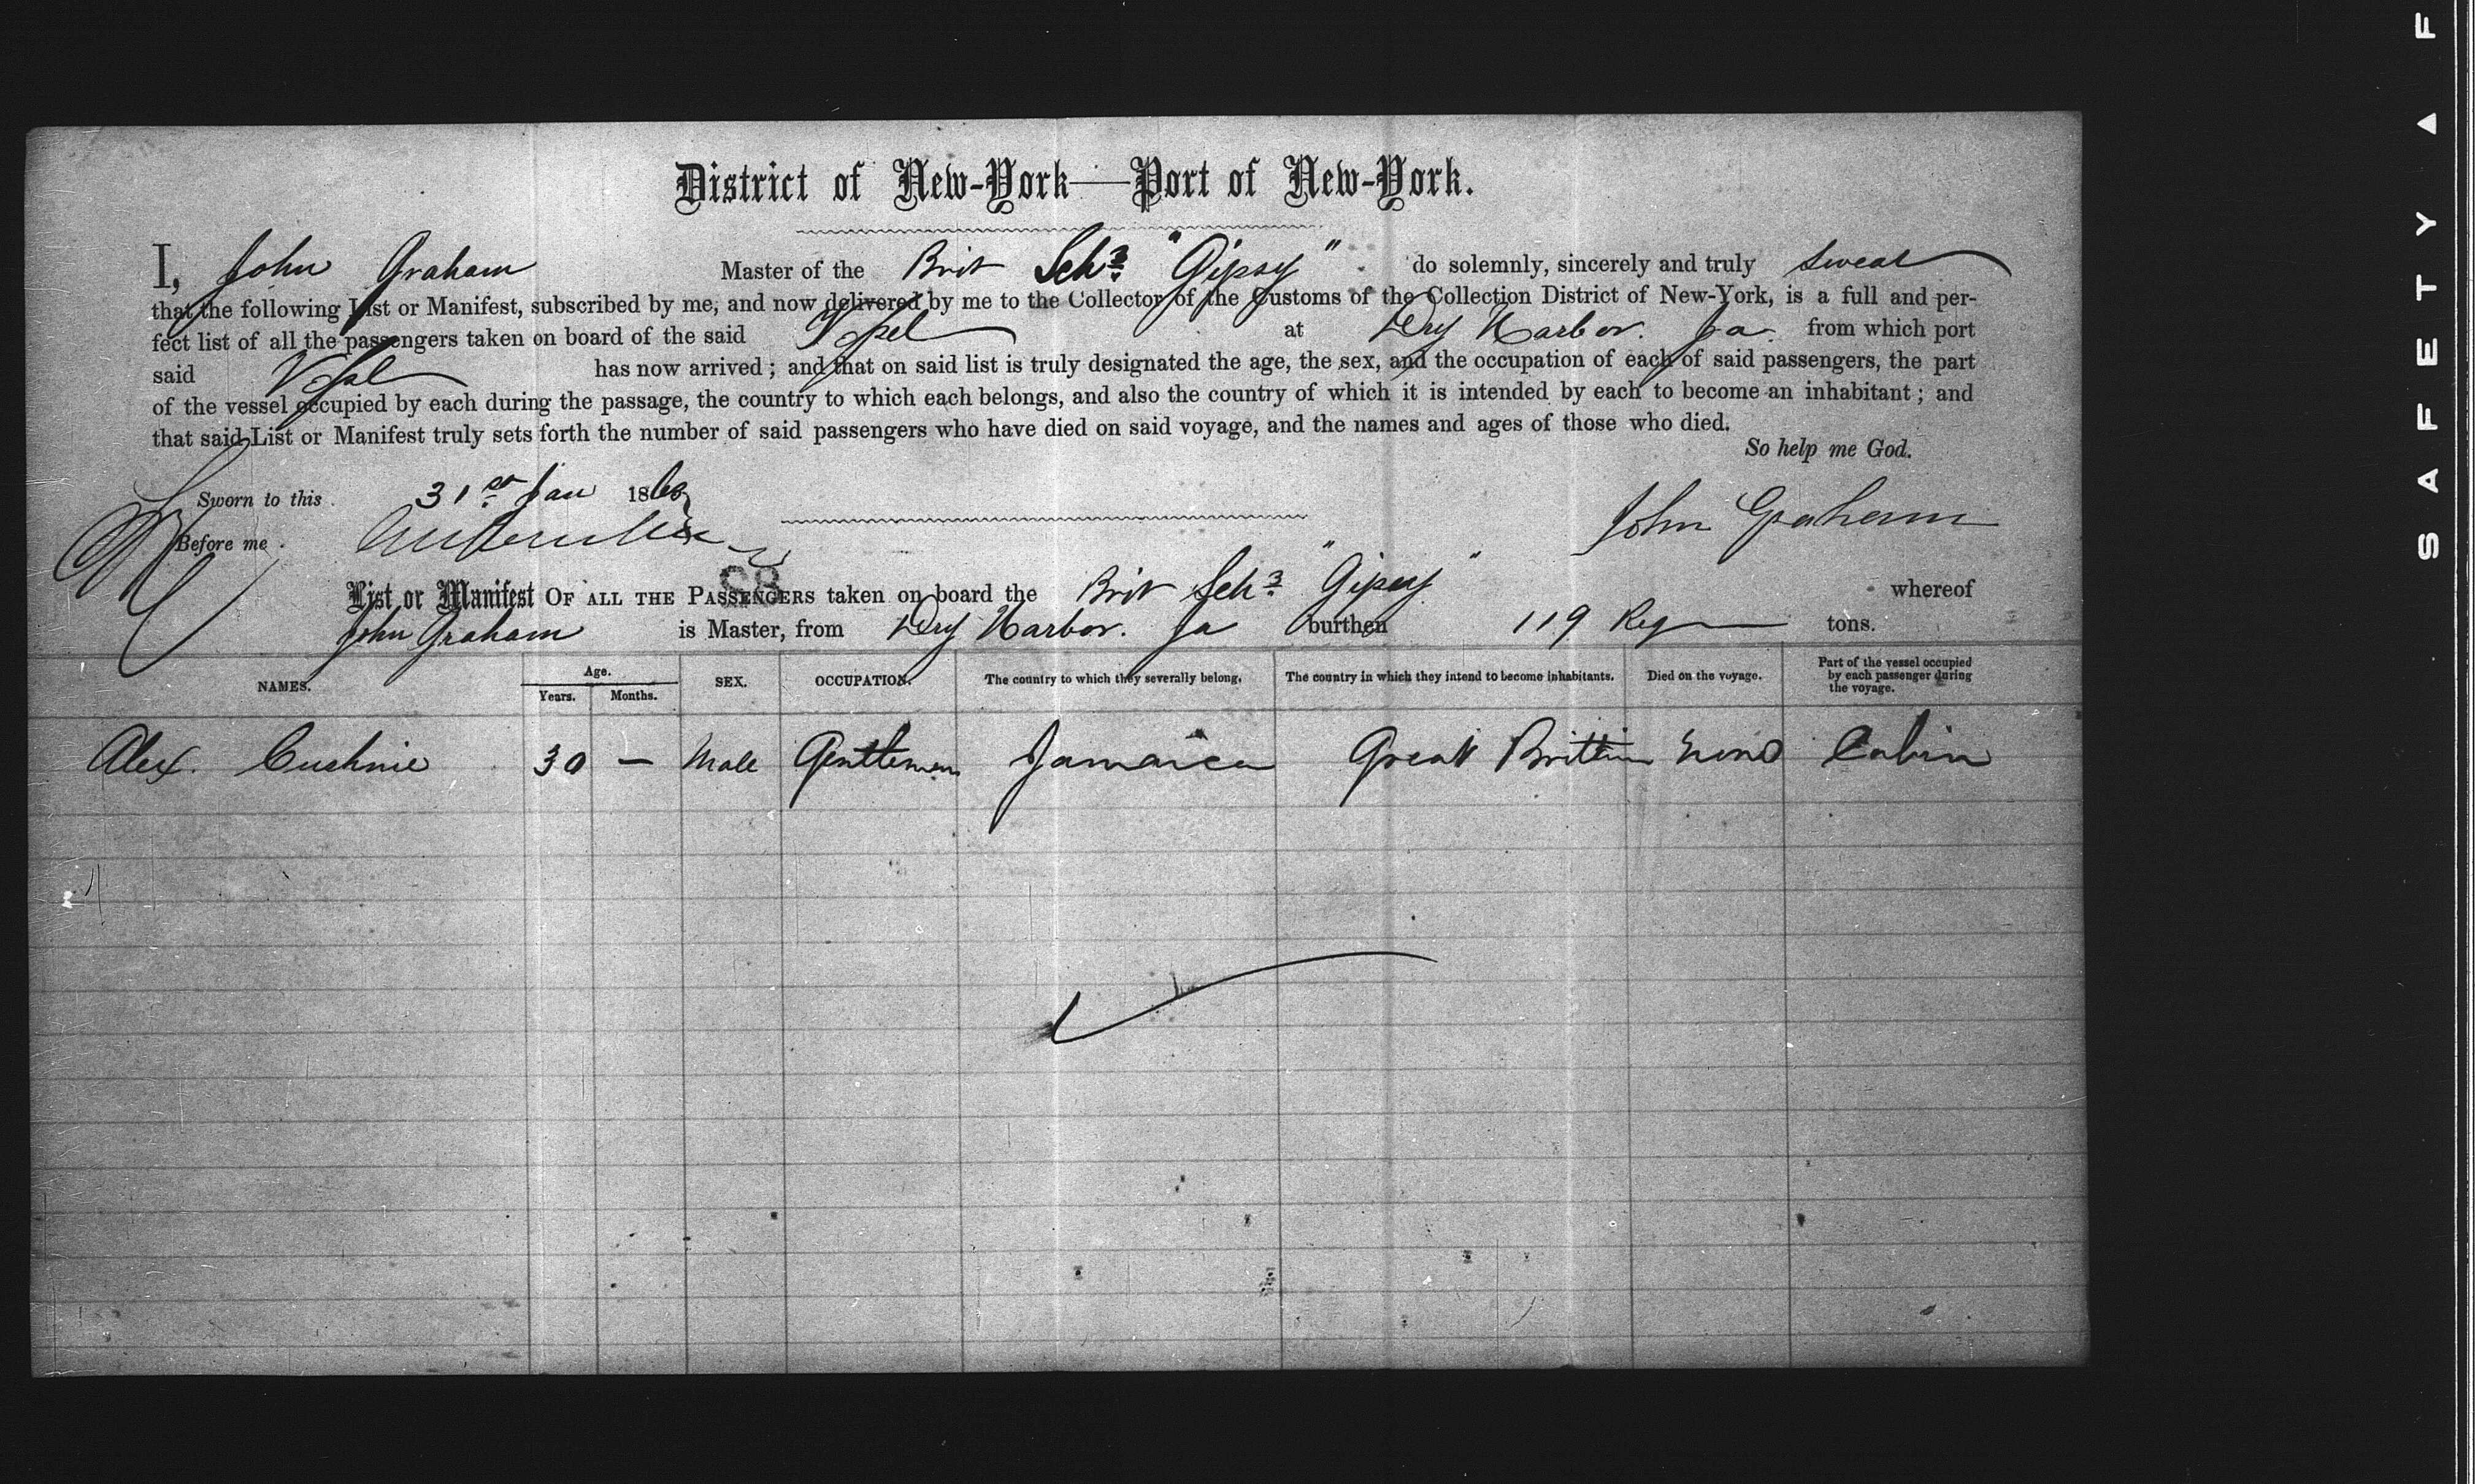 District of New-York—Port of New-York.
I, John Graham Master of the Brit Schr "Gipsy" do solemnly, sincerely and truly swear
that the following List or Manifest, subscribed by me, and now delivered by me to the Collector of the Customs of the Collection District of New-York, is a full and per-
fect list of all the passengers taken on board of the said Vessel at Dry Harbor. Ja. from which port
said Vessel has now arrived; and that on said list is truly designated the age, the sex, and the occupation of each of said passengers, the part
of the vessel occupied by each during the passage, the country to which each belongs, and also the country of which it is intended by each to become an inhabitant; and
that said List or Manifest truly sets forth the number of said passengers who have died on said voyage, and the names and ages of those who died.
So help me God.
Sworn to this 31st Jan 186
John Graham
Before me
88
List or Manifest OF ALL THE PASSENGERS taken on board the Brit Schr "Gipsy" whereof
John Graham is Master, from Dry Harbor. Ja burthen 119 Reg tons.
NAMES. Age. Years. Months. SEX. OCCUPATION. The country to which they severally belong. The country in which they intend to become inhabitants. Died on the voyage. Part of the vessel occupied by each passenger during the voyage.
Alex. Cushnie 30 — Male Gentleman Jamaica Great Brittin none Cabin
SAFETY ▲ F